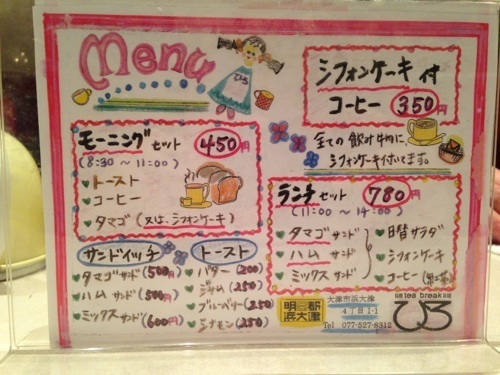 Menu
ひろ
シフォンケーキ付
コーヒー 350円
全ての飲み物に、
シフォンケーキ付いてます。
モーニングセット 450円
(8:30 ～ 11:00)
トースト
コーヒー
タマゴ (又は、シフォンケーキ)
ランチセット 780円
(11:00 ～ 14:00)
タマゴサンド
ハムサンド
ミックスサンド
日替サラダ
シフォンケーキ
コーヒー
サンドイッチ
タマゴサンド (500円)
ハムサンド (500円)
ミックスサンド (600円)
トースト
バター (200)
ジャム (250)
ブルーベリー (250)
シナモン (250)
明日都
浜大津
大津市浜大津
4丁目1-1
Tel 077-527-8312
tea break